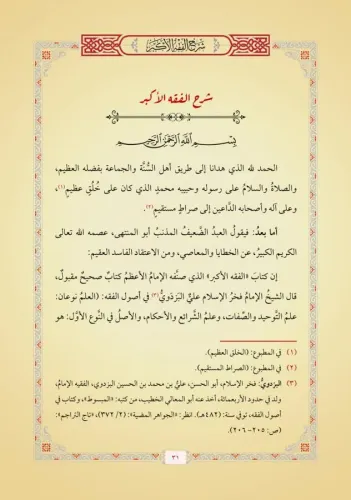 شرح الفقه الأكبر
شرح الفقه الأكبر
بسم الله الرحمن الرحيم
الحمد لله الذي هدانا إلى طريق أهل السُّنَّة والجماعة بفضله العظيم،
والصلاةُ والسلامُ على رسوله وحبيبه محمدٍ الذي كان على خُلُقٍ عظيم(١)،
وعلى آله وأصحابه الدَّاعين إلى صراطٍ مستقيمٍ(٢).
أما بعدُ: فيقولُ العبدُ الضَّعيفُ المذنبُ أبو المنتهى، عصمه الله تعالى
الكريم الكبيرُ، عن الخطايا والمعاصي، ومن الاعتقاد الفاسد العقيم:
إن كتابَ «الفقه الأكبر» الذي صنَّفه الإمامُ الأعظمُ كتابٌ صحيحٌ مقبولٌ،
قال الشيخُ الإمامُ فخرُ الإسلام عليٌّ البَزْدَويُّ(٣) في أصول الفقه: (العلمُ نوعان:
علمُ التَّوحيد والصِّفات، وعلمُ الشَّرائع والأحكام، والأصلُ في النَّوع الأوَّل: هو
(١) في المطبوع: (الخلق العظيم).
(٢) في المطبوع: (الصراط المستقيم).
(٣) البَزْدَويُّ: فخر الإسلام، أبو الحسن، عليُّ بن محمد بن الحسين البزدوي، الفقيه الإمامُ،
ولد في حدود الأربعمائة، أخذ عنه أبو المعالي الخطيب، من كتبه: «المبسوط»، وكتاب في
أصول الفقه، توفي سنة: (٤٨٢هـ). انظر: «الجواهر المضية»: (٢/ ٣٧٢)، «تاج التراجم»:
(ص: ٢٠٥- ٢٠٦).
٣١